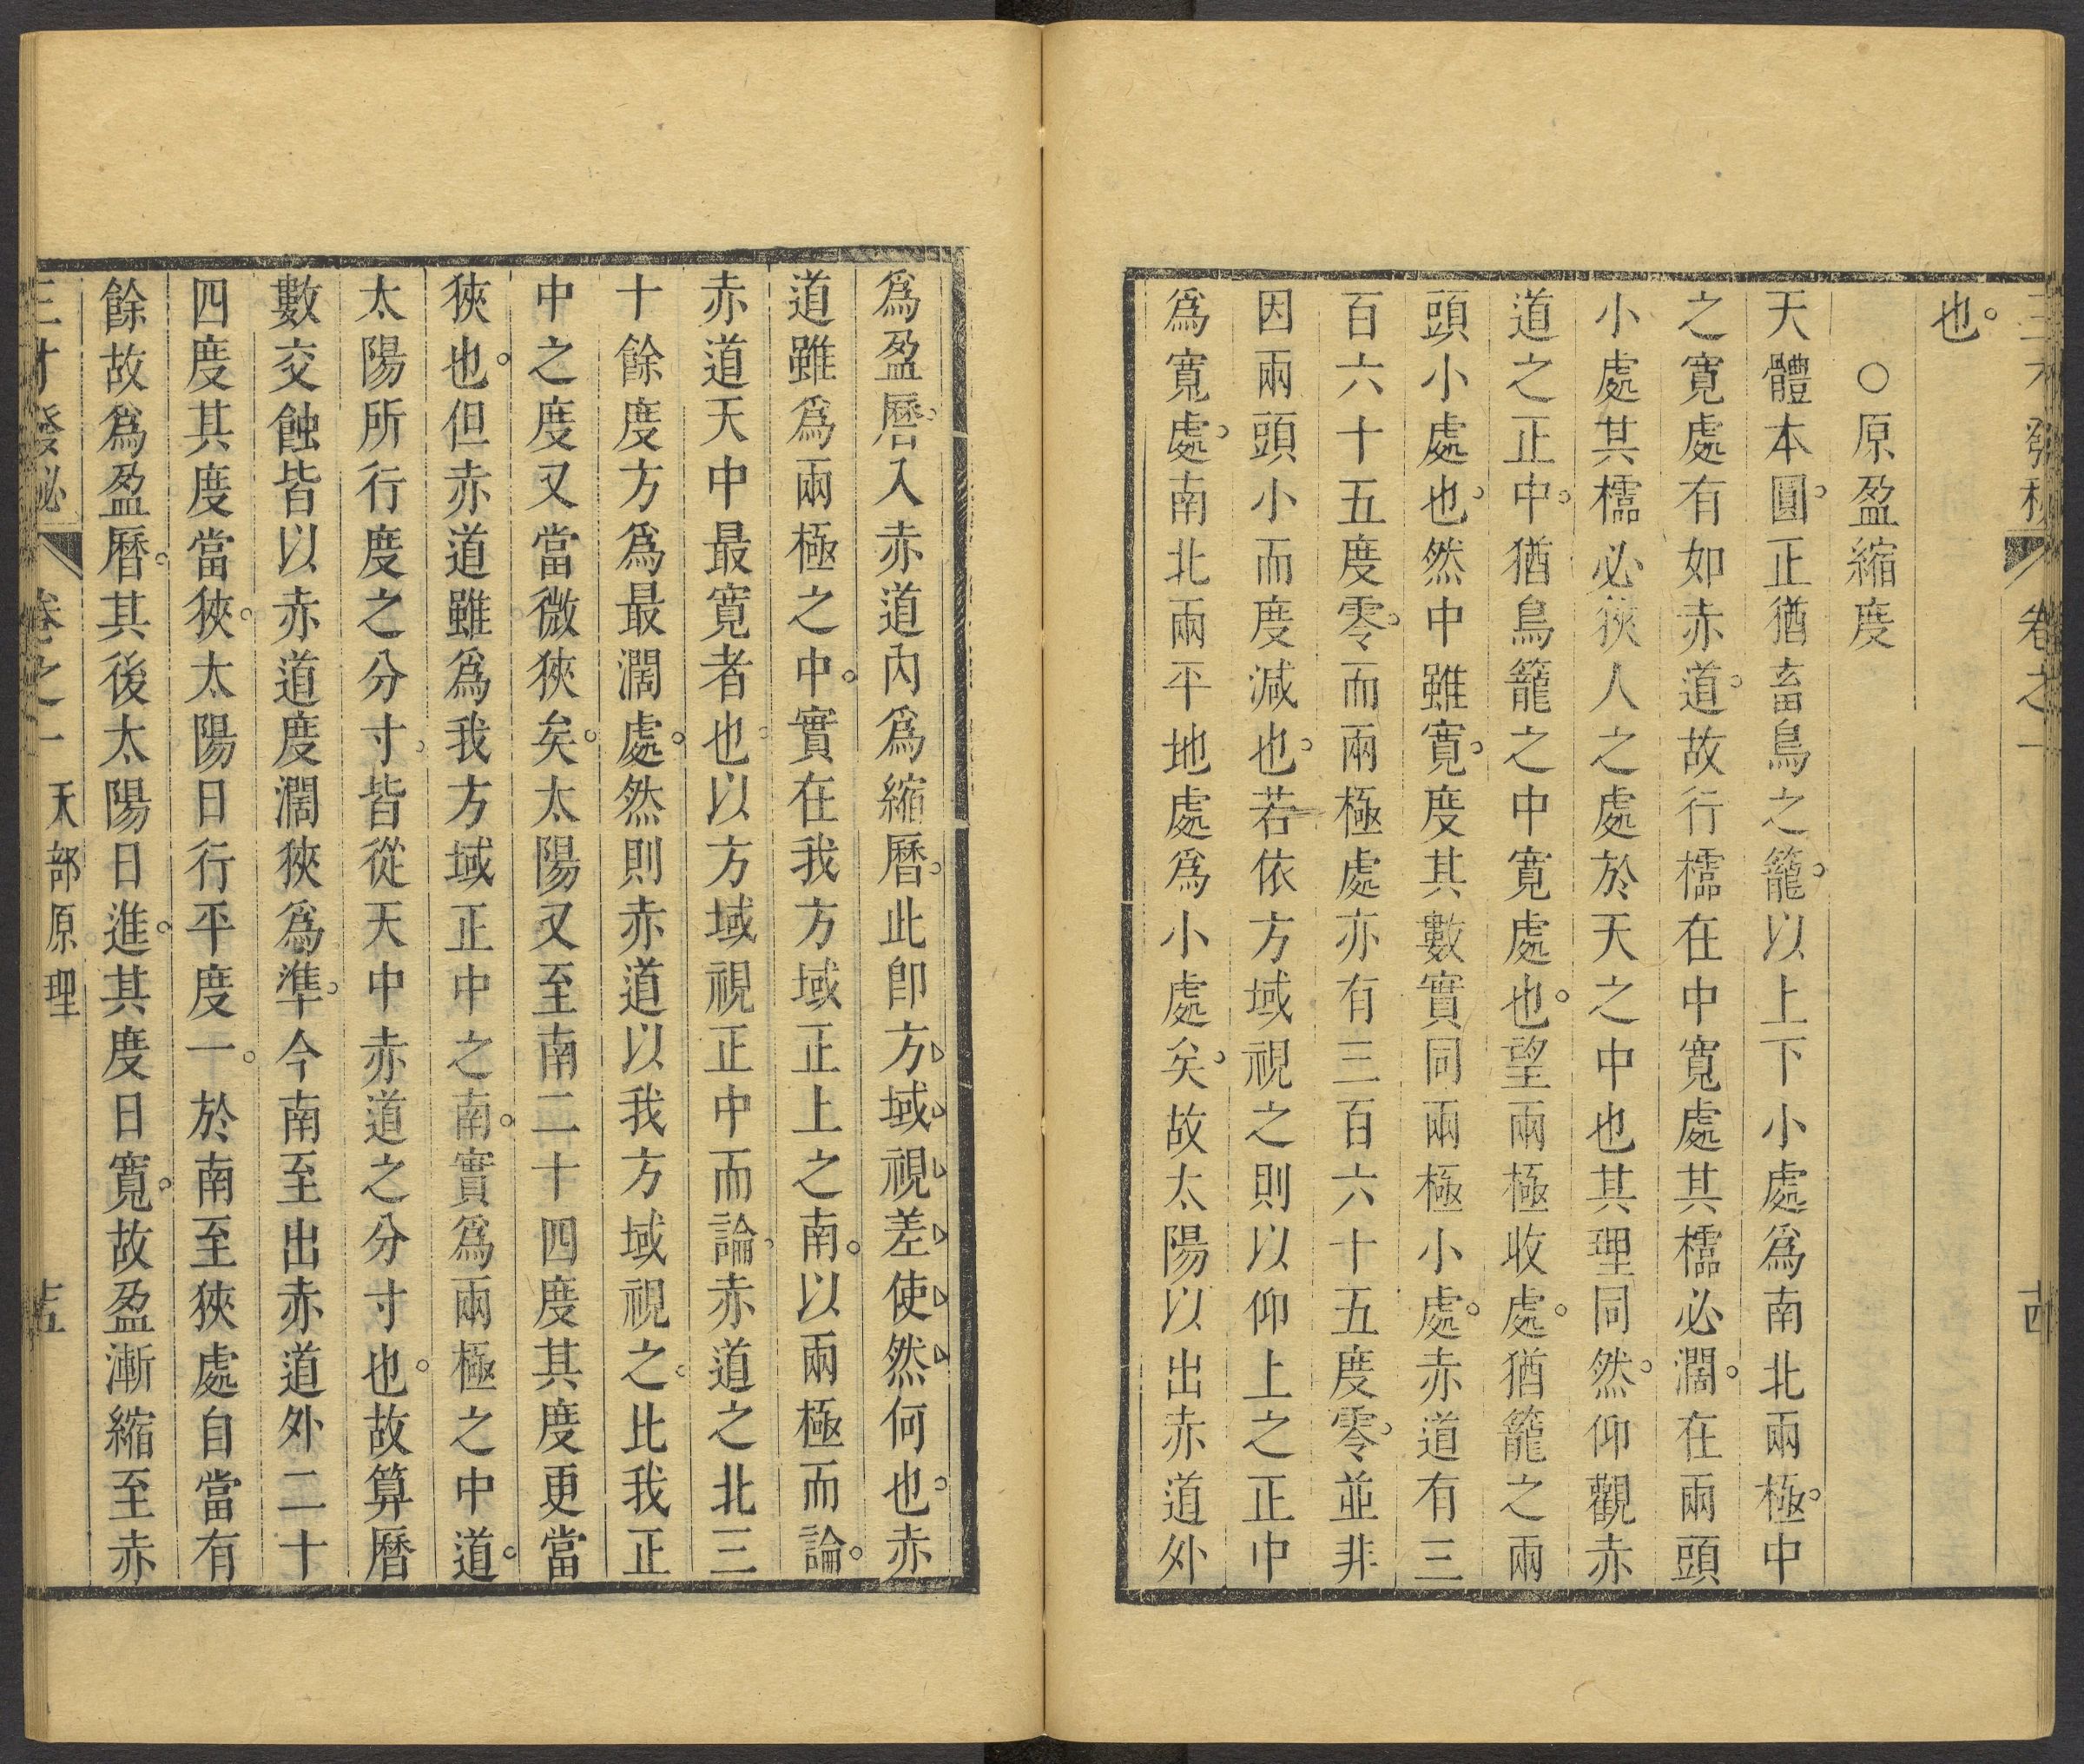 三才發秘 卷之一 十四
也。
○原盈縮度
天體本圓。正猶畜鳥之籠。以上下小處爲南北兩極。中
之寬處有如赤道。故行檽在中寬處其檽必濶。在兩頭
小處其檽必狹人之處於天之中也其理同然。仰觀赤
道之正中。猶鳥籠之中寬處也。望兩極收處。猶籠之兩
頭小處也。然中雖寬。度其數實同兩極小處。赤道有三
百六十五度零。而兩極處亦有三百六十五度零。並非
因兩頭小而度減也。若依方域視之則以仰上之正中
爲寬處。南北兩平地處爲小處矣。故太陽以出赤道外
爲盈曆。入赤道內爲縮曆。此卽方域視差使然何也。赤
道雖爲兩極之中。實在我方域正上之南。以兩極而論。
赤道天中最寬者也。以方域視正中而論。赤道之北三
十餘度方爲最濶處。然則赤道以我方域視之。比我正
中之度又當微狹矣。太陽又至南二十四度其度更當
狹也。但赤道雖爲我方域正中之南。實爲兩極之中道。
太陽所行度之分寸。皆從天中赤道之分寸也。故算曆
數交蝕皆以赤道度濶狹爲準。今南至出赤道外二十
四度其度當狹。太陽日行平度一。於南至狹處自當有
餘故爲盈曆。其後太陽日進。其度日寬。故盈漸縮至赤
三才發秘 卷之一 天部原理 十五